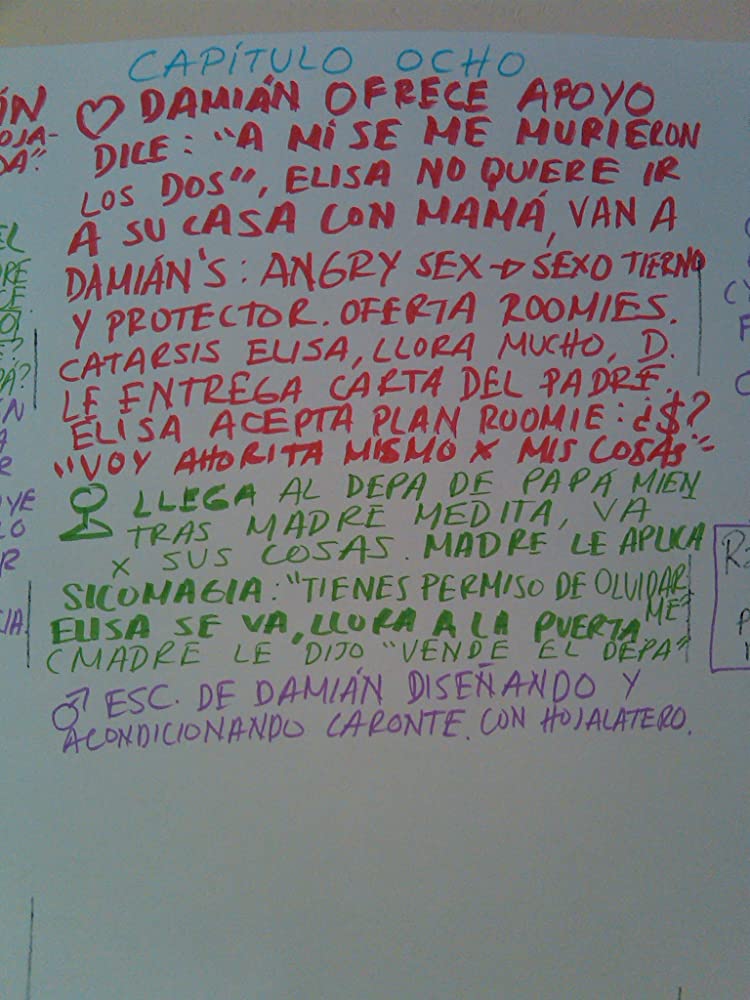 CAPÍTULO OCHO
♡ DAMIÁN OFRECE APOYO
DICE: "A MÍ SE ME MURIERON
LOS DOS", ELISA NO QUIERE IR
A SU CASA CON MAMÁ, VAN A
DAMIÁN'S: ANGRY SEX → SEXO TIERNO
Y PROTECTOR. OFERTA ROOMIES.
CATARSIS ELISA, LLORA MUCHO, D.
LE ENTREGA CARTA DEL PADRE.
ELISA ACEPTA PLAN ROOMIE: ¿$?
"VOY AHORITA MISMO X MIS COSAS"
LLEGA AL DEPA DE PAPÁ MIEN
TRAS MADRE MEDITA, VA
X SUS COSAS. MADRE LE APLICA
SICOMAGIA: "TIENES PERMISO DE OLVIDAR
ME"
ELISA SE VA, LLORA A LA PUERTA
(MADRE LE DIJO "VENDE EL DEPA"
♂ ESC. DE DAMIÁN DISEÑANDO Y
ACONDICIONANDO CARONTE. CON HOJALATERO.